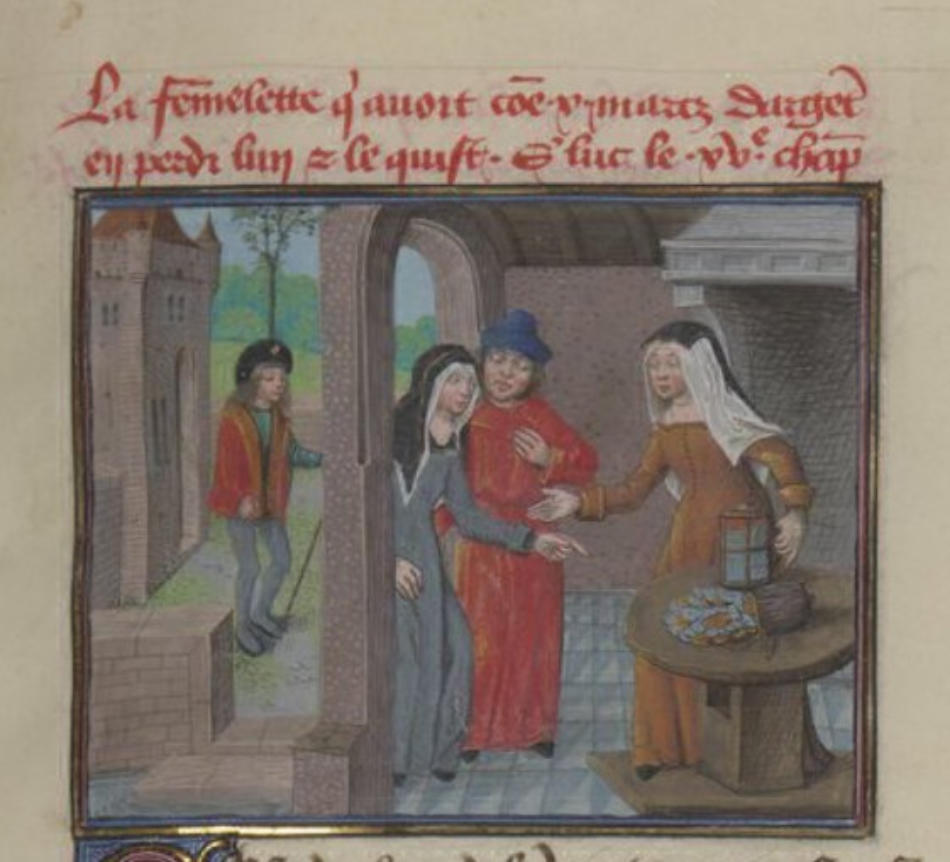 La fēmelette q̄ auoit cōe·x·marcz dargēt
en perdi lun ⁊ le quist. S̄ luc le ·xvᵉ. chap̄